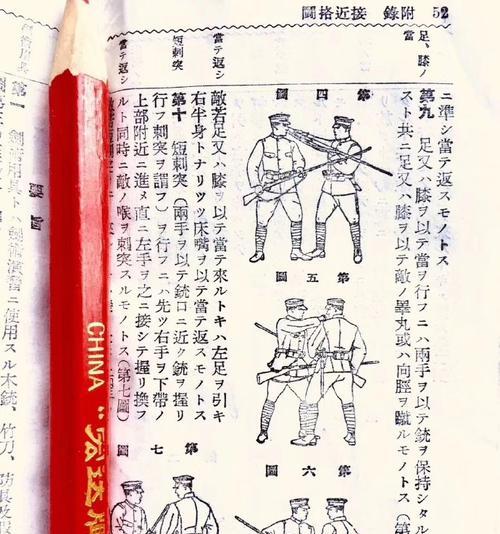 52 附錄 接近格鬪
足、膝ノ
當
ニ準シ當テ返スモノトス
第九 足又ハ膝ヲ以テ當ヲ行フニハ兩手ヲ以テ銃ヲ保持シタル
スト共ニ足又ハ膝ヲ以テ敵ノ睾丸或ハ向脛ヲ蹴ルモノトス(第
第四圖
第五圖
第六圖
當テ返シ
敵若足又ハ膝ヲ以テ當テ來ルトキハ左足ヲ引キ
右半身トナリツツ床嘴ヲ以テ當テ返スモノトス
短刺突
第十 短刺突(兩手ヲ以テ銃口ニ近ク銃ヲ握リ
行フ刺突ヲ謂フ)ヲ行フニハ先ツ右手ヲ下帶ノ
上部附近ニ進メ直ニ左手ヲ之ニ接シテ握リ換フ
當テ返シ
ルト同時ニ敵ノ喉ヲ刺突スルモノトス(第七圖)
第七圖
CHINA
要旨
第一 劍術用具トハ劍術演習ニ使用スル木銃、竹刀、防